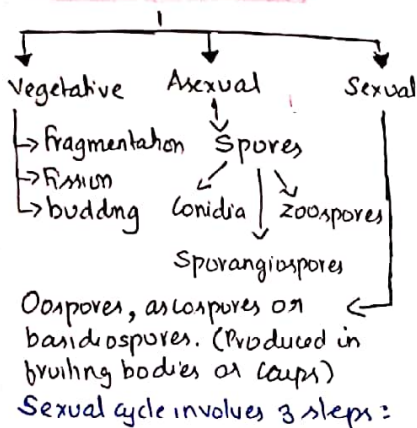 Vegetative Asexual Sexual
fragmentation Spores
fission
budding Conidia Zoospores
Sporangiospores
Oospores, ascospores or
basidiospores. (Produced in
fruiting bodies or
Sexual cycle involves 3 steps: